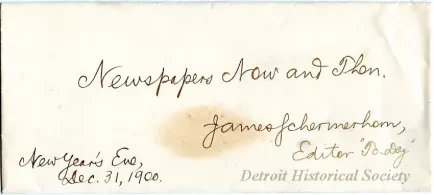 Newspapers Now and Then.
James Schermerhorn,
Editor "To-Day"
New Year's Eve,
Dec. 31, 1900.
Detroit Historical Society